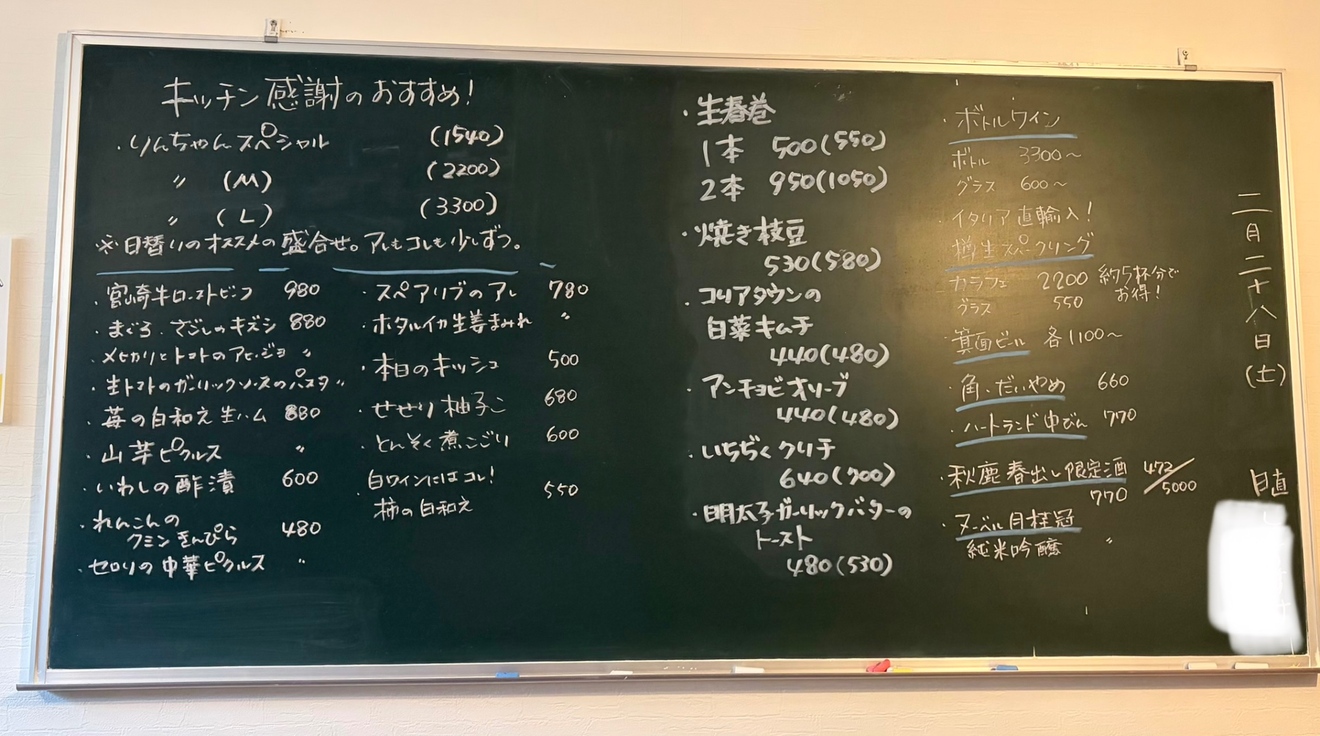 キッチン感謝のおすすめ!
・りんちゃんスペシャル (1540)
〃 (M) (2200)
〃 (L) (3300)
※日替りのオススメの盛合せ。アレもコレも少しずつ。
・宮崎牛ローストビーフ 980
・まぐろ、さごしのキズシ 880
・メヒカリとトマトのアヒージョ 〃
・生トマトのガーリックソースのパスタ 〃
・苺の白和え生ハム 880
・山芋ピクルス 〃
・いわしの酢漬 600
・れんこんの
クミンきんぴら 480
・セロリの中華ピクルス 〃
・スペアリブのアレ 780
・ホタルイカ生姜まみれ 〃
・本日のキッシュ 500
・せせり柚子こ 680
・とんそく煮こごり 600
・白ワインにはコレ!
柿の白和え 550
・生春巻
1本 500(550)
2本 950(1050)
・焼き枝豆
530(580)
・コリアタウンの
白菜キムチ
440(480)
・アンチョビオリーブ
440(480)
・いちぢくクリチ
640(700)
・明太子ガーリックバターの
トースト
480(530)
・ボトルワイン
ボトル 3300〜
グラス 600〜
・イタリア直輸入!
樽生スパークリング
カラフェ 2200 約5杯分で
お得!
グラス 550
・箕面ビール 各1100〜
・角・だいやめ 660
・ハートランド中びん 770
・秋鹿 春出し限定酒 473/5000
770
・ヌーベル月桂冠
純米吟醸 〃
二月二十八日(土)
日直